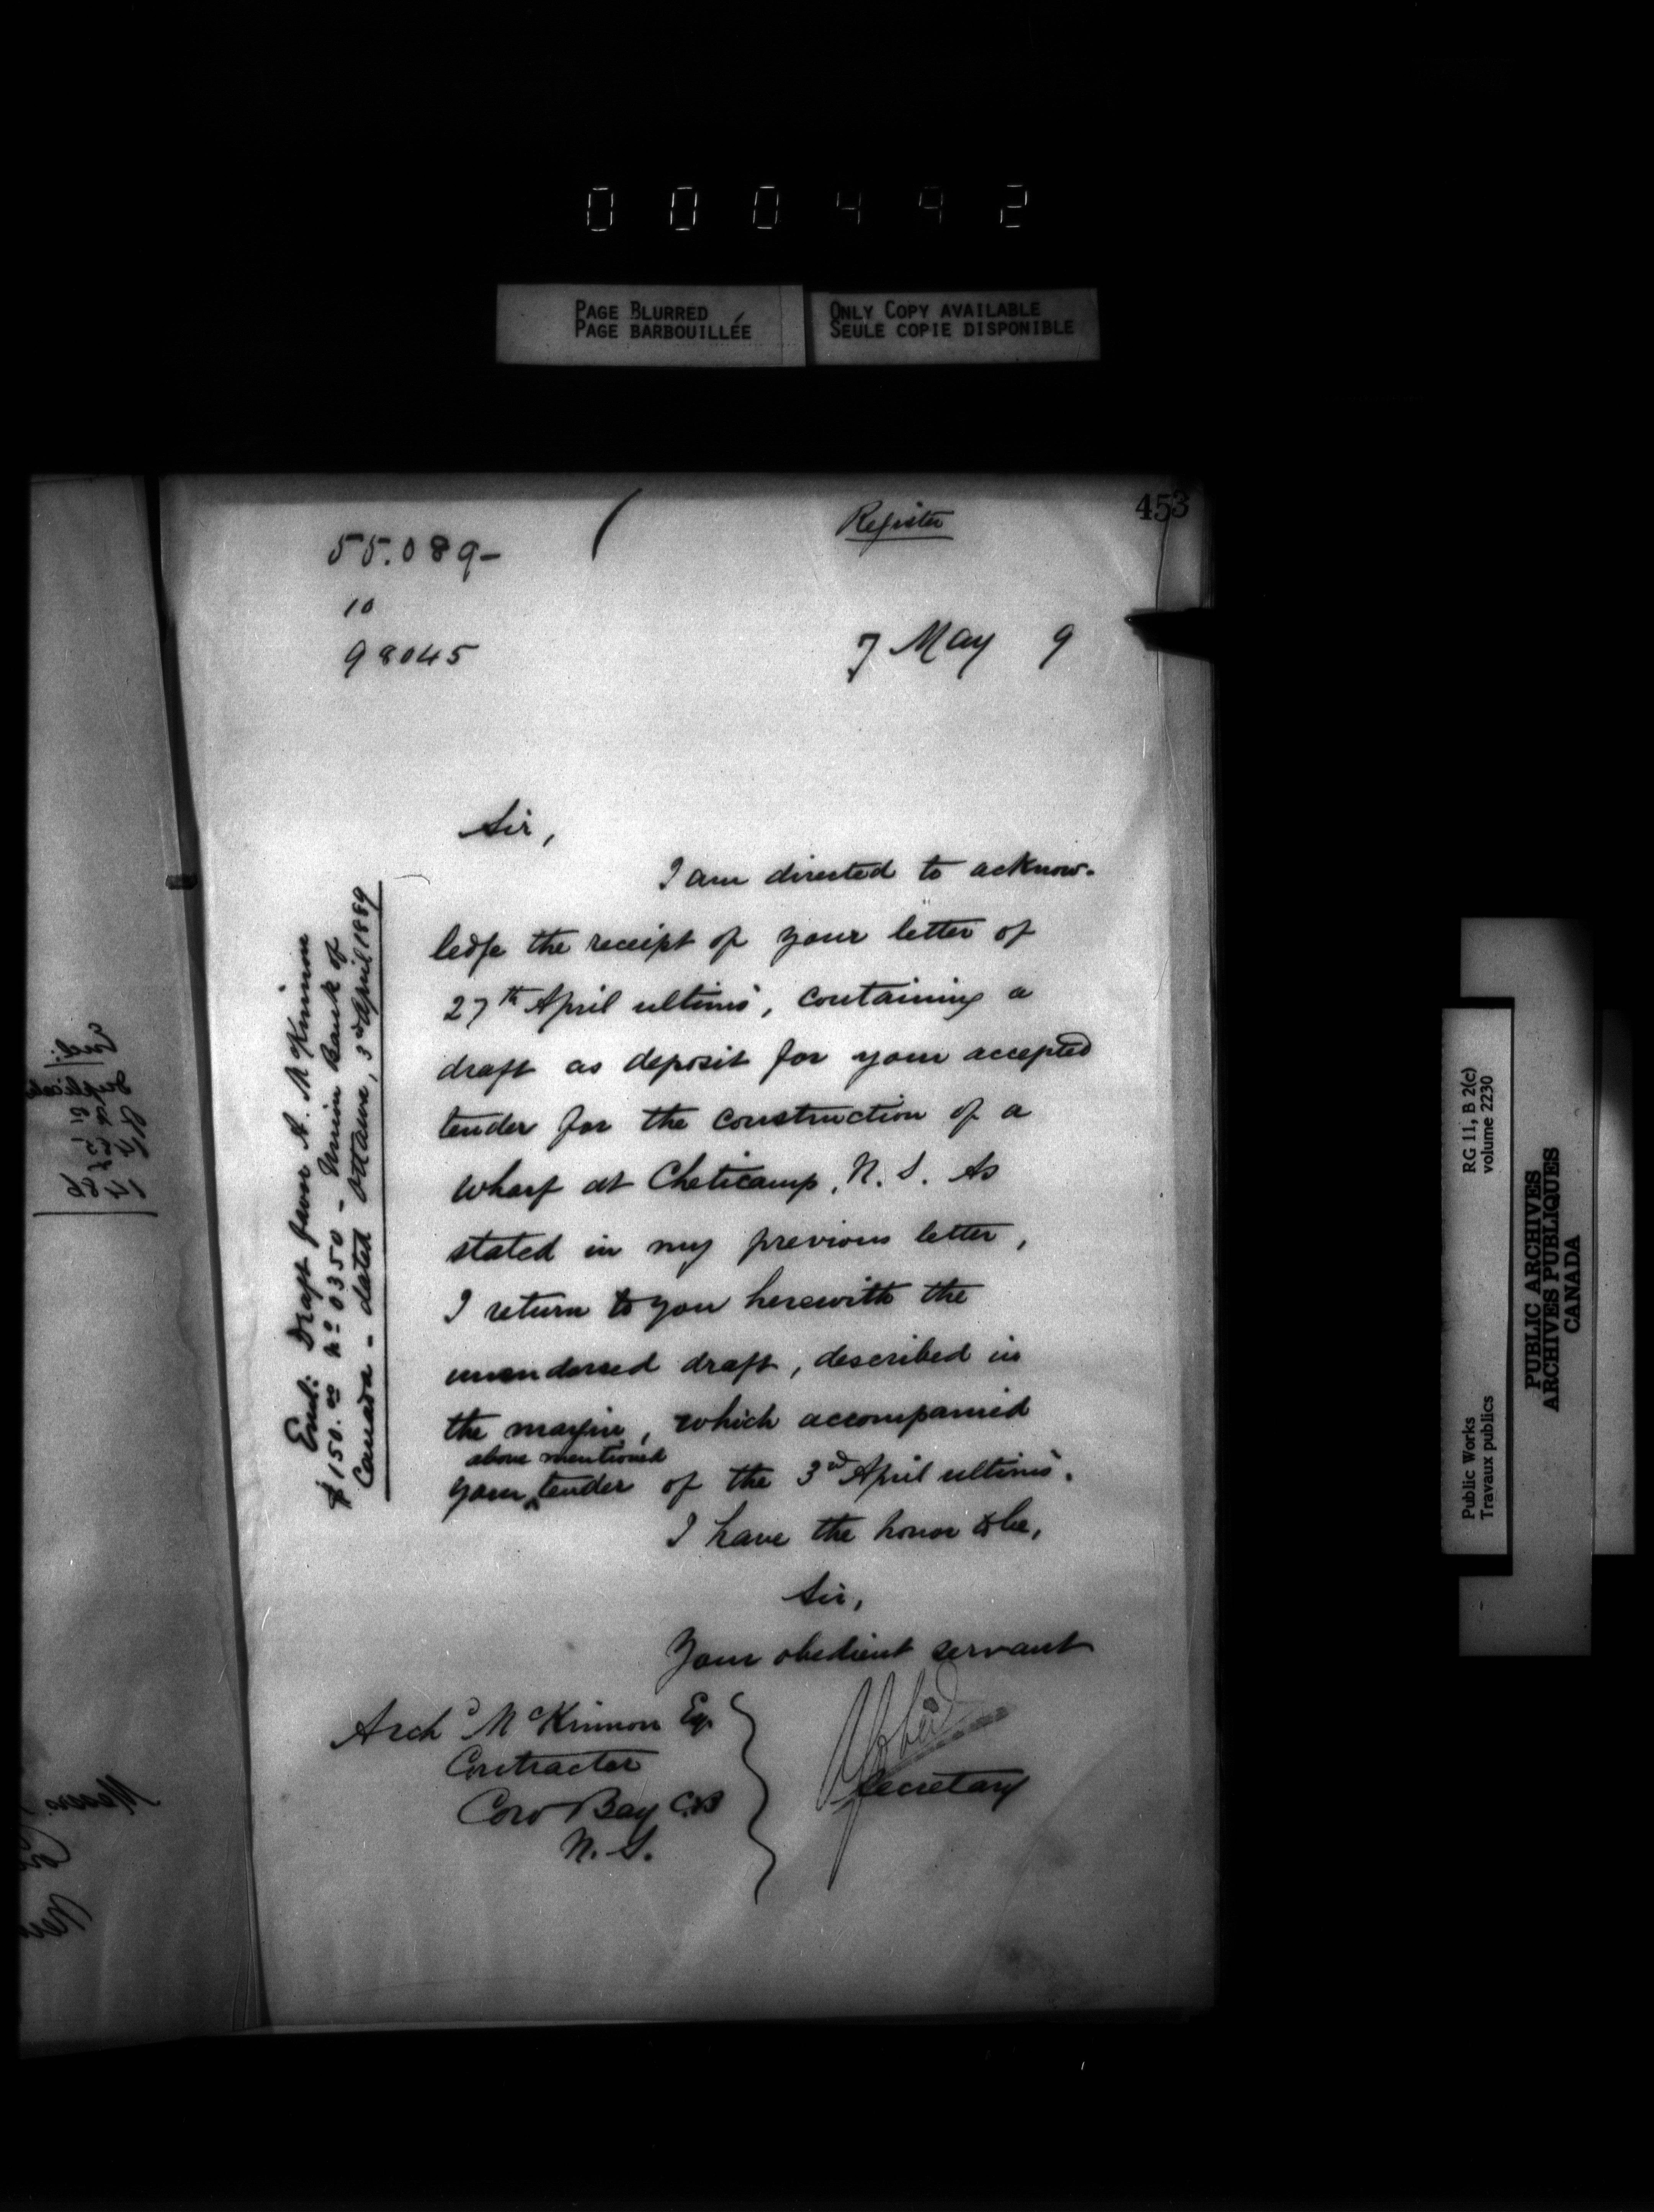 000492
PAGE BLURRED
PAGE BARBOUILLÉE
ONLY COPY AVAILABLE
SEULE COPIE DISPONIBLE
453
Register
55.089-
10
98045
7 May 9
Sir,
I am directed to acknow-
ledge the receipt of your letter of
27th April ultimo, containing a
draft as deposit for your accepted
tender for the construction of a
wharf at Cheticamp, N. S. As
stated in my previous letter,
I return to you herewith the
unendorsed draft, described in
the margin, which accompanied
above mentioned
your tender of the 3rd April ultimo.
I have the honor to be,
Sir,
Your obedient servant
Secretary
Archd McKinnon Esq.
Contractor
Cow Bay C.B
N. S.
Encl: Draft from A. McKinnon
$150.00 No 0350 - Union Bank of
Canada - dated Ottawa, 3rd April 1889
RG 11, B 2(c)
volume 2230
Public Works
Travaux publics
PUBLIC ARCHIVES
ARCHIVES PUBLIQUES
CANADA